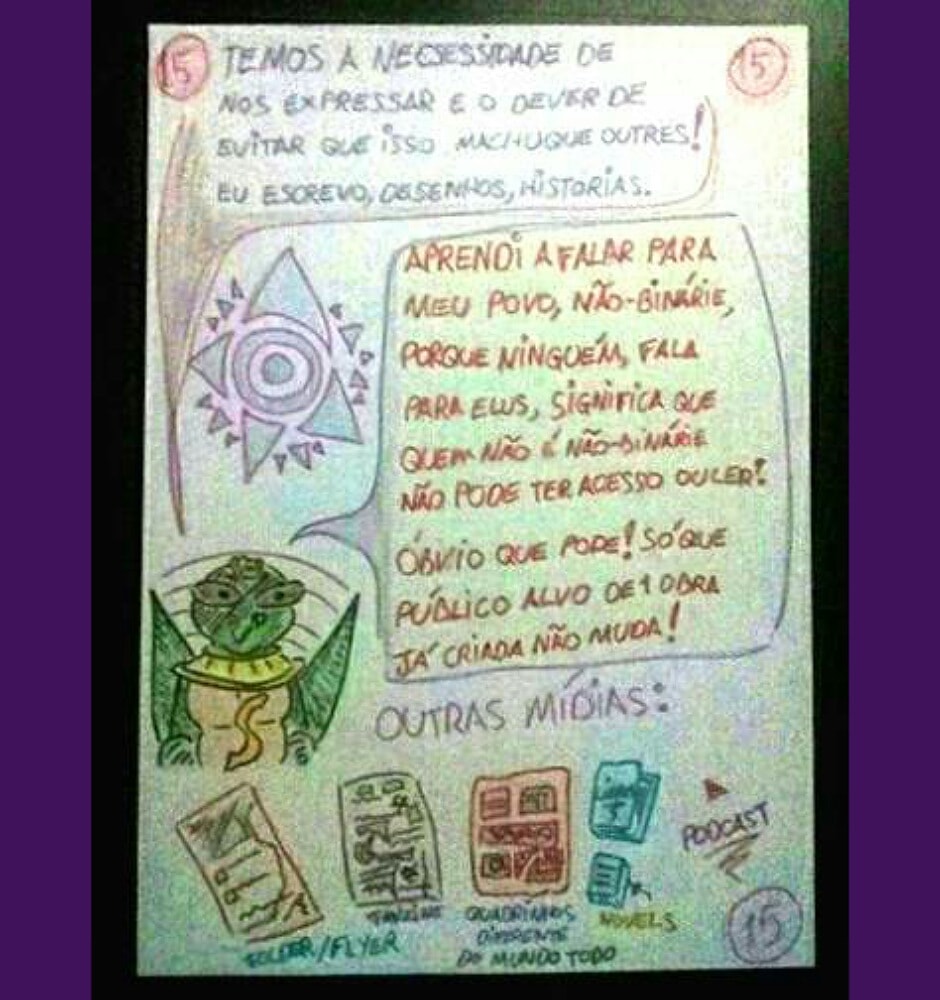 15 TEMOS A NECESSIDADE DE 15
NOS EXPRESSAR E O DEVER DE
EVITAR QUE ISSO MACHUQUE OUTRES!
EU ESCREVO, DESENHOS, HISTORIAS.
APRENDI A FALAR PARA
MEU POVO, NÃO-BINÁRIE,
PORQUE NINGUÉM, FALA
PARA ELUS, SIGNIFICA QUE
QUEM NÃO É NÃO-BINÁRIE
NÃO PODE TER ACESSO OU LER!
ÓBVIO QUE PODE! SÓ QUE
PÚBLICO ALVO DE 1 OBRA
JÁ CRIADA NÃO MUDA!
OUTRAS MÍDIAS:
FOLDER/FLYER
FANZINE
QUADRINHOS
DIFERENTE
DO MUNDO TODO
NOVELS
PODCAST
15